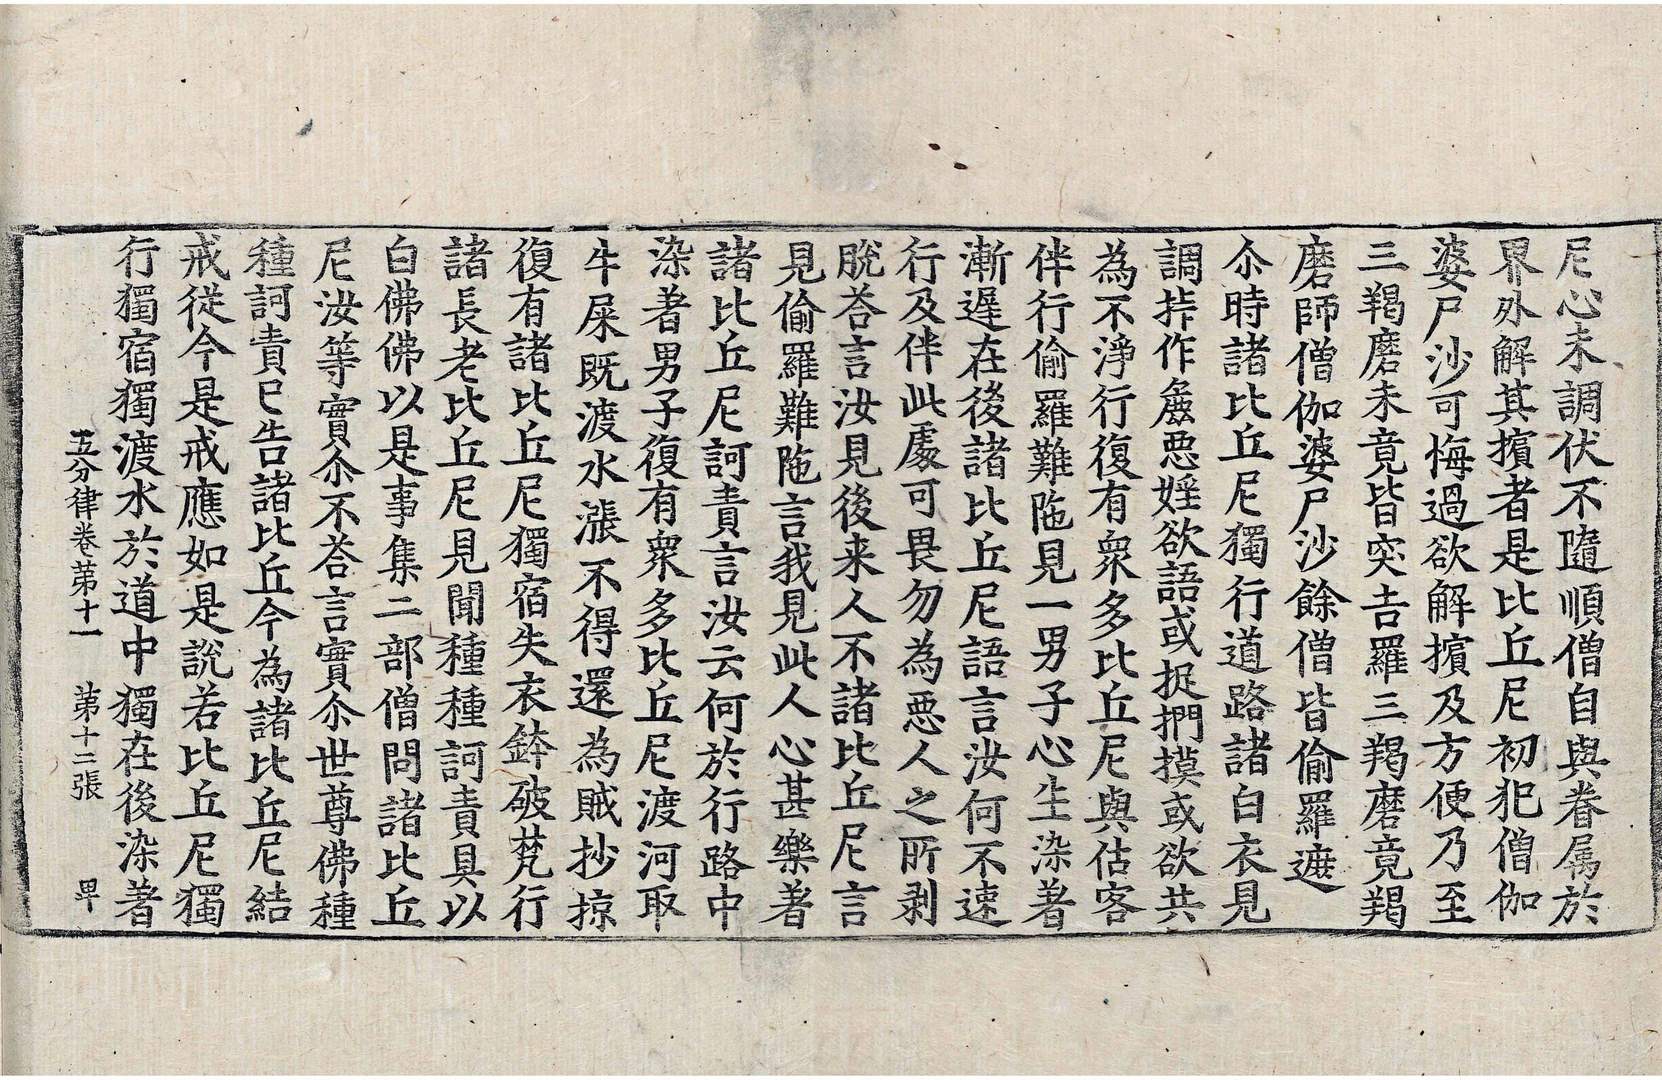 尼心未調伏不隨順僧自與眷屬於
界外解其擯者是比丘尼初犯僧伽
婆尸沙可悔過欲解擯及方便乃至
三羯磨未竟皆突吉羅三羯磨竟羯
磨師僧伽婆尸沙餘僧皆偷羅遮
尒時諸比丘尼獨行道路諸白衣見
調挊作麁惡婬欲語或捉捫摸或欲共
為不淨行復有衆多比丘尼與估客
伴行偷羅難陁見一男子心生染著
漸遲在後諸比丘尼語言汝何不速
行及伴此處可畏勿為惡人之所剥
脫荅言汝見後来人不諸比丘尼言
見偷羅難陁言我見此人心甚樂著
諸比丘尼訶責言汝云何於行路中
染著男子復有衆多比丘尼渡河取
牛屎既渡水漲不得還為賊抄掠
復有諸比丘尼獨宿失衣鉢破梵行
諸長老比丘尼見聞種種訶責具以
白佛佛以是事集二部僧問諸比丘
尼汝等實尒不荅言實尒世尊佛種
種訶責已告諸比丘今為諸比丘尼結
戒從今是戒應如是說若比丘尼獨
行獨宿獨渡水於道中獨在後染著
五分律卷苐十一 苐十二張 卑